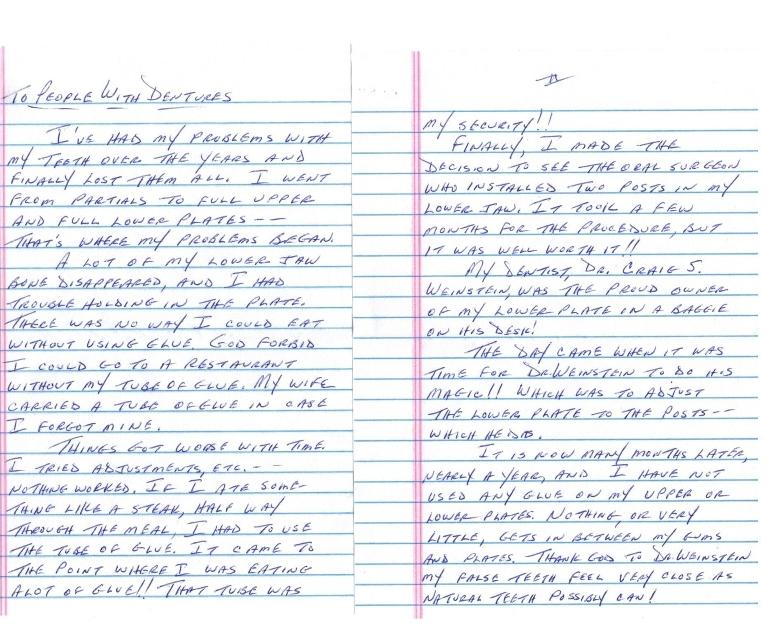 To People With Dentures
I've had my problems with
my teeth over the years and
finally lost them all. I went
from partials to full upper
and full lower plates --
that's where my problems began.
A lot of my lower jaw
bone disappeared, and I had
trouble holding in the plate.
There was no way I could eat
without using glue. God forbid
I could go to a restaurant
without my tube of glue. My wife
carried a tube of glue in case
I forgot mine.
Things got worse with time.
I tried adjustments, etc. --
nothing worked. If I ate some-
thing like a steak, half way
through the meal, I had to use
the tube of glue. It came to
the point where I was eating
alot of glue!! That tube was
II
my security!!
Finally, I made the
decision to see the oral surgeon
who installed two posts in my
lower jaw. It took a few
months for the procedure, but
it was well worth it!!
My dentist, Dr. Craig S.
Weinstein, was the proud owner
of my lower plate in a baggie
on his desk!
The day came when it was
time for Dr. Weinstein to do his
magic!! Which was to adjust
the lower plate to the posts --
which he did.
It is now many months later,
nearly a year, and I have not
used any glue on my upper or
lower plates. Nothing, or very
little, gets in between my gums
and plates. Thank God to Dr. Weinstein
my false teeth feel very close as
natural teeth possibly can!